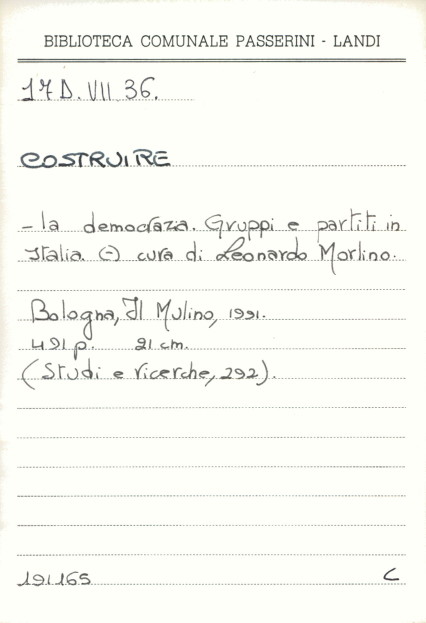 BIBLIOTECA COMUNALE PASSERINI - LANDI
17 D. VII 36.
COSTRUIRE
- la democrazia. Gruppi e partiti in
Italia. (-) cura di Leonardo Morlino.
Bologna, Il Mulino, 1991.
491 p. 21 cm.
(Studi e ricerche, 292).
191165 C